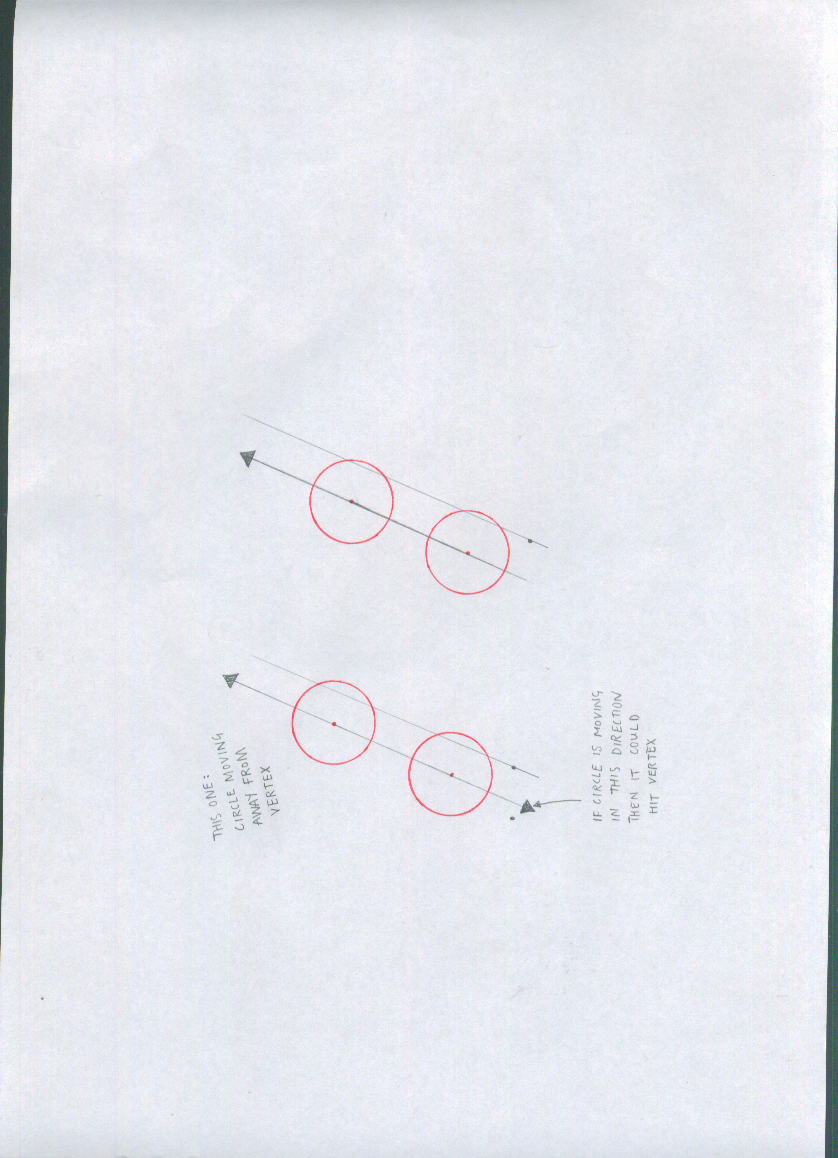 THIS ONE:
CIRCLE MOVING
AWAY FROM
VERTEX
IF CIRCLE IS MOVING
IN THIS DIRECTION
THEN IT COULD
HIT VERTEX